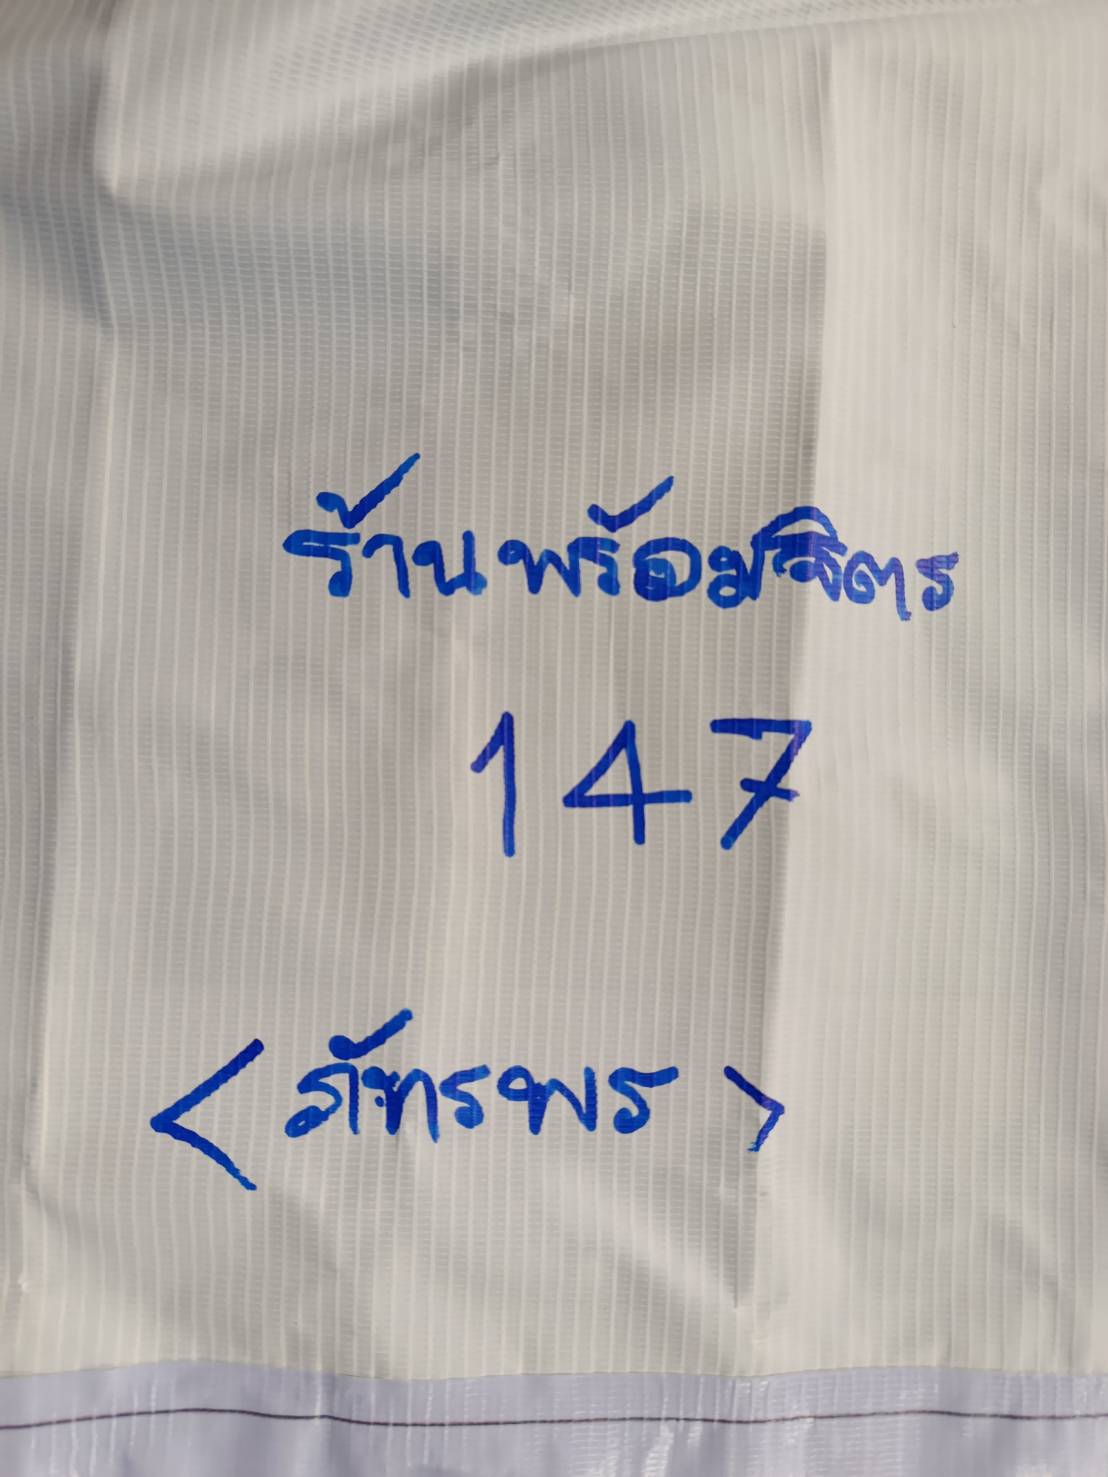 ร้านพร้อมจิตร
147
<ภัทรพร>